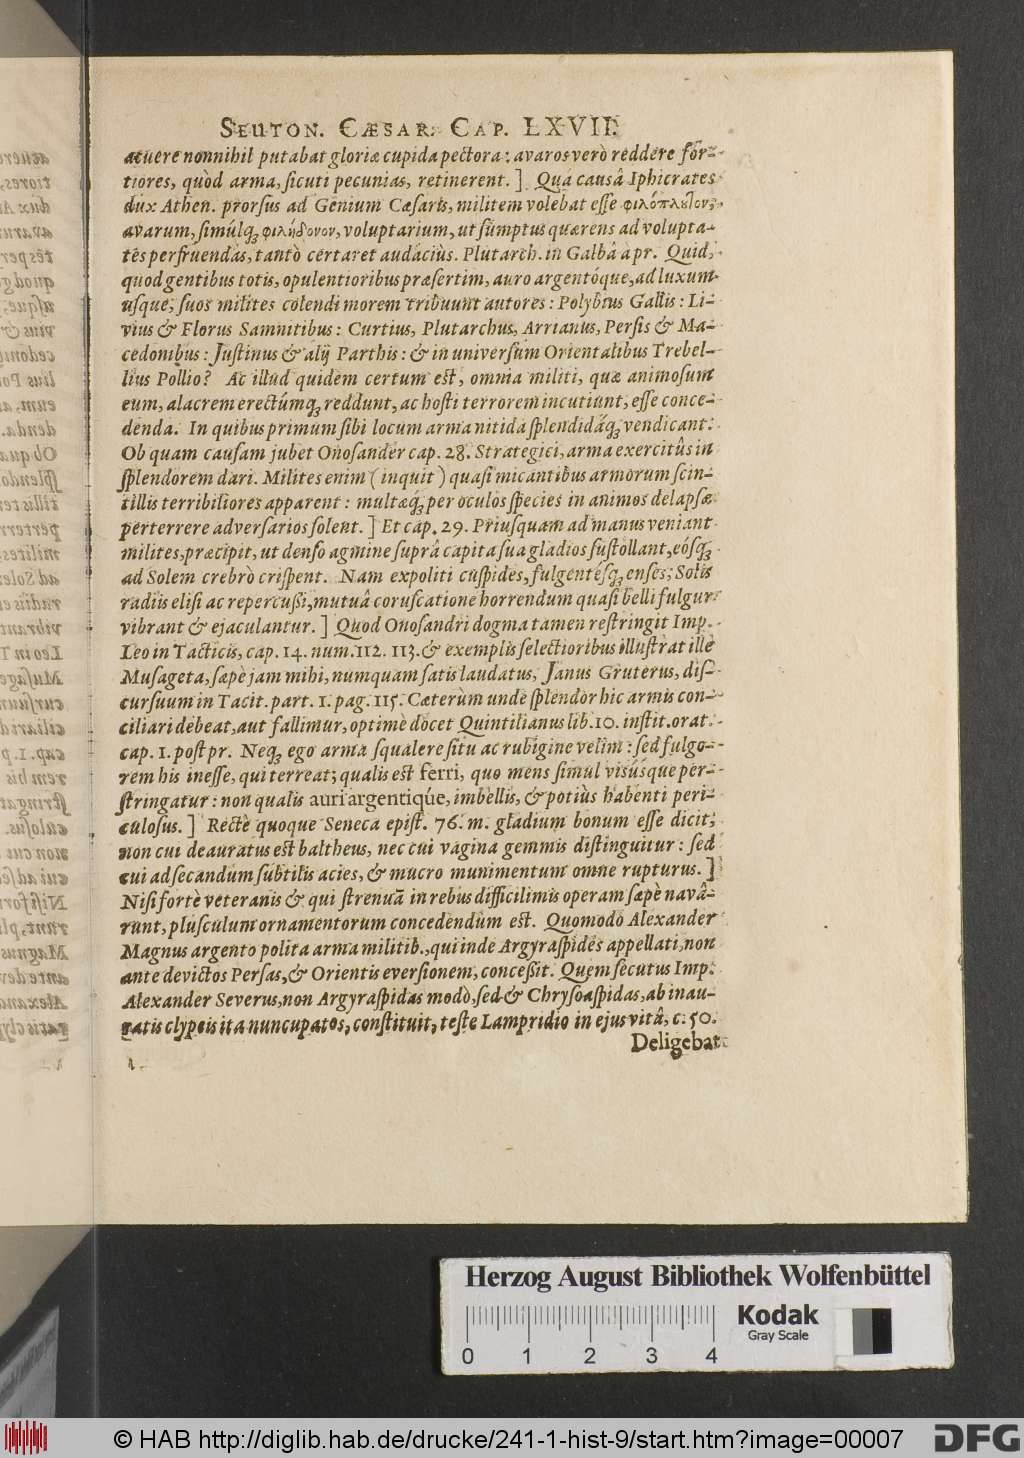 Seuton. Cæsar. Cap. LXVII.
acuere nonnihil putabat gloriæ cupida pectora: avaros verò reddere for-
tiores, quòd arma, sicuti pecunias, retinerent.] Quâ causâ Iphicrates
dux Athen. prorsus ad Genium Cæsaris, militem volebat esse φιλόπλουτον,
avarum, simúlq; φιλήδονον, voluptarium, ut sumptus quærens ad volupta-
tes perfruendas, tantò certaret audaciùs. Plutarch. in Galbâ apr. Quid,
quod gentibus totis, opulentioribus præsertim, auro argentóque, ad luxum
usque, suos milites colendi morem tribuunt autores: Polybius Gallis: Li-
vius & Florus Samnitibus: Curtius, Plutarchus, Arrianus, Persis & Ma-
cedonibus: Justinus & alij Parthis: & in universum Orientalibus Trebel-
lius Pollio? Ac illud quidem certum est, omnia militi, quæ animosum
eum, alacrem erectúmq; reddunt, ac hosti terrorem incutiunt, esse conce-
denda. In quibus primum sibi locum arma nitida splendidáq; vendicant.
Ob quam causam jubet Onosander cap. 28. Strategici, arma exercitûs in
splendorem dari. Milites enim (inquit) quasi micantibus armorum scin-
tillis terribiliores apparent: multæq; per oculos species in animos delapsæ
perterrere adversarios solent.] Et cap. 29. Priusquam ad manus veniant
milites, præcipit, ut denso agmine suprâ capita sua gladios sustollant, eósq;
ad Solem crebrò crispent. Nam expoliti cuspides, fulgentésq; enses, Solis
radiis elisi ac repercussi, mutuâ coruscatione horrendum quasi belli fulgur
vibrant & ejaculantur.] Quod Onosandri dogma tamen restringit Imp.
Leo in Tacticis, cap. 14. num. 112. 113. & exemplis selectioribus illustrat ille
Musageta, sæpè jam mihi, numquam satis laudatus, Janus Gruterus, dis-
cursuum in Tacit. part. 1. pag. 115. Cæterùm unde splendor hic armis con-
ciliari debeat, aut fallimur, optimè docet Quintilianus lib. 10. instit. orat.
cap. 1. post pr. Neq; ego arma squalere situ ac rubigine velim: sed fulgo-
rem his inesse, qui terreat; qualis est ferri, quo mens simul visúsque per-
stringatur: non qualis auri argentique, imbellis, & potiùs habenti peri-
culosus.] Rectè quoque Seneca epist. 76. m. gladium bonum esse dicit;
non cui deauratus est baltheus, nec cui vagina gemmis distinguitur: sed
cui ad secandum subtilis acies, & mucro munimentum omne rupturus.]
Nisi fortè veteranis & qui strenuā in rebus difficilimis operam sæpè navâ-
runt, plusculum ornamentorum concedendum est. Quomodo Alexander
Magnus argento polita arma militib., qui inde Argyraspides appellati, non
ante devictos Persas, & Orientis eversionem, concessit. Quem secutus Imp.
Alexander Severus, non Argyraspidas modò, sed & Chrysoaspidas, ab inau-
ratis clypeis ita nuncupatos, constituit, teste Lampridio in ejus vitâ, c. 50.
Deligebat
Herzog August Bibliothek Wolfenbüttel
Kodak
Gray Scale
0 1 2 3 4
© HAB http://diglib.hab.de/drucke/241-1-hist-9/start.htm?image=00007
DFG